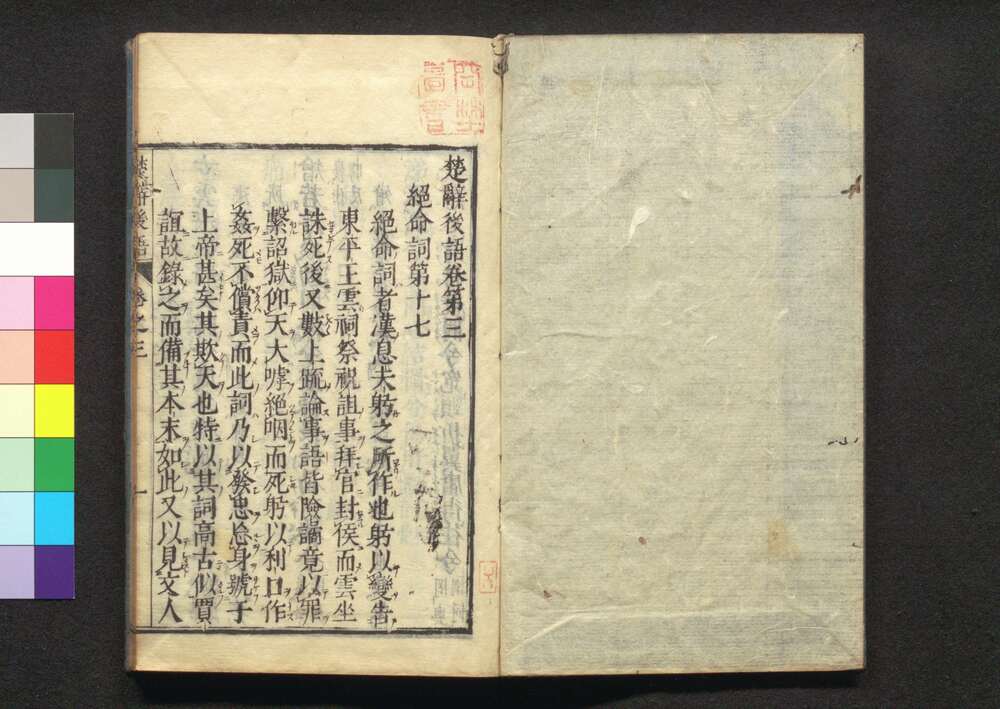 楚辭後語卷第三
絕命詞第十七
絕命詞者漢息夫躬之所作也躬以變告
東平王雲祠祭祝詛事拜官封侯而雲坐
誅死後又數上疏論事語皆險譎竟以罪
繫詔獄仰天大呼絕咽而死躬以利口作
姦死不償責而此詞乃以發忠忘身號于
上帝甚矣其欺天也特以其詞高古似賈
誼故錄之而備其本末如此又以見文人
楚辭後語 卷之三 一